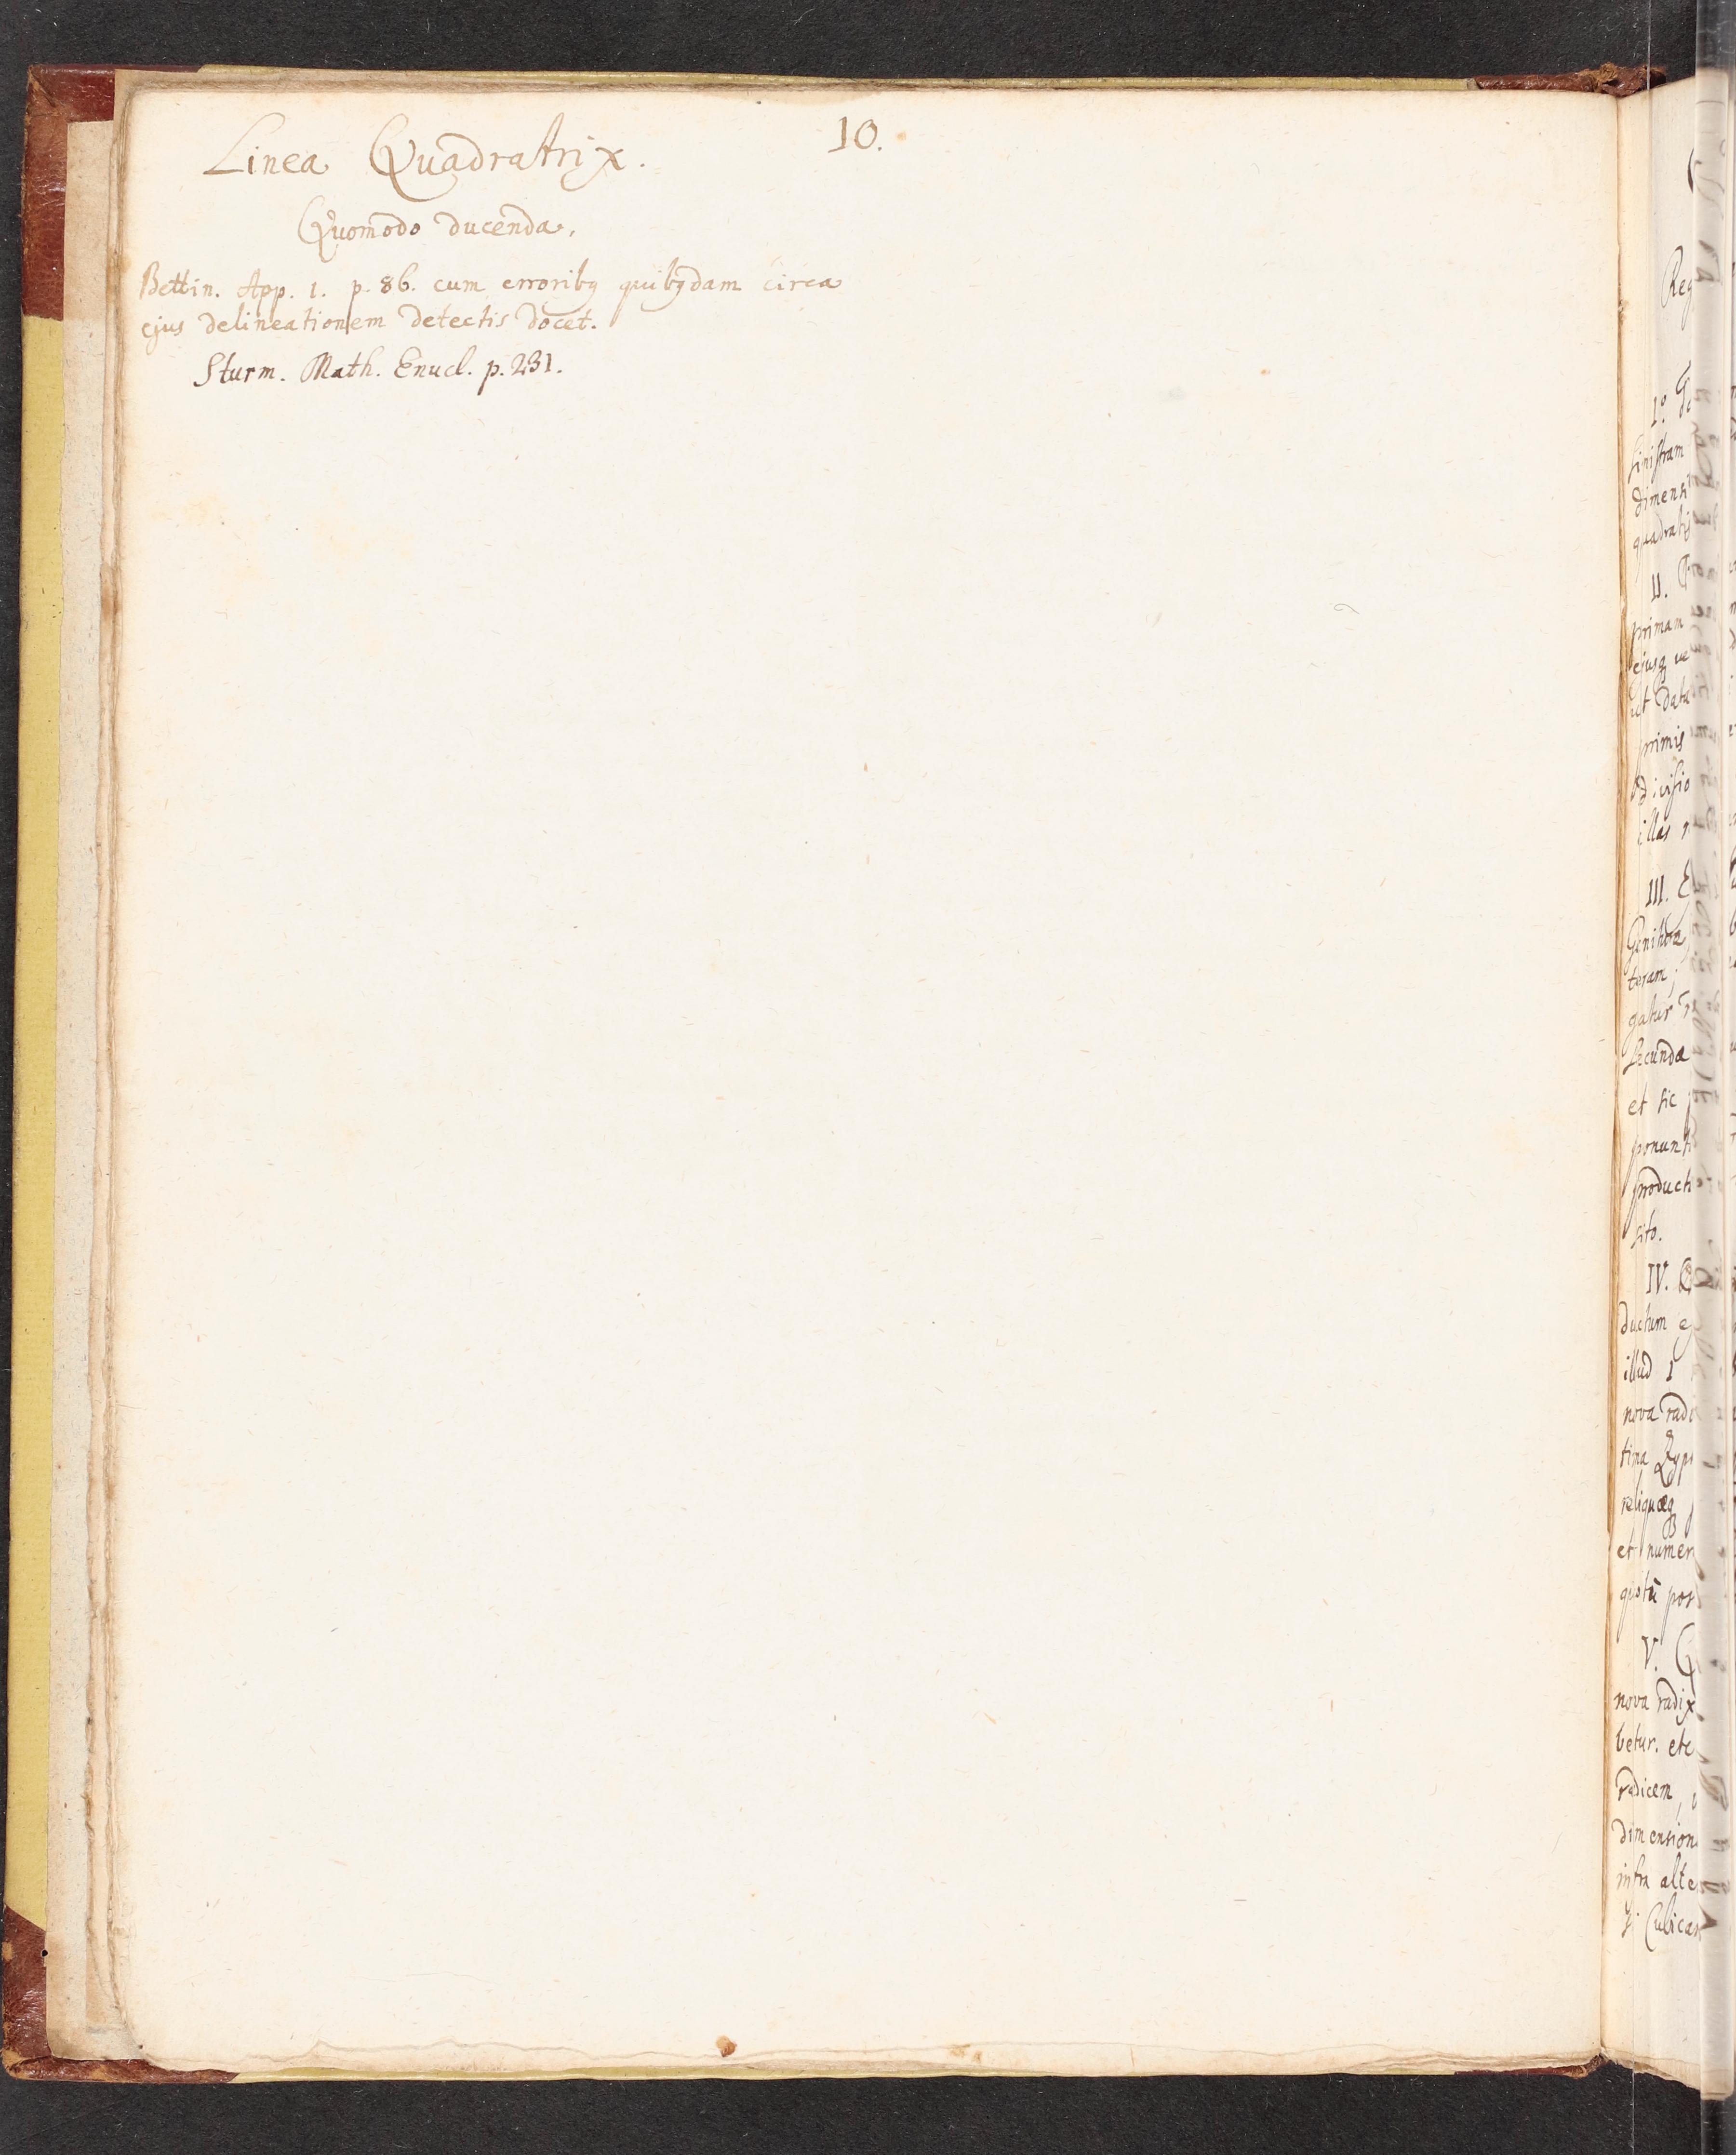 10.
Linea Quadratrix.
Quomodo ducenda.
Bettin. App. 1. p. 86. cum erroribꝫ quibꝫdam circa
ejus delineationem detectis docet.
Sturm. Math. Enucl. p. 231.
Reg
1º
sinistram
dimensi
quadratis
II.
primam
ejusqꝫ ve
ut datu
primis
divisio
illas
III.
Genitura
teram;
gatur
secunda
et sic
ponunt
product
sito.
IV.
ductum
illud 1
nova rad
tima
reliquæqꝫ
et numer
quotū pos
V.
nova radix
betur. etc
radicem,
dimension
infra alte
Cubicar